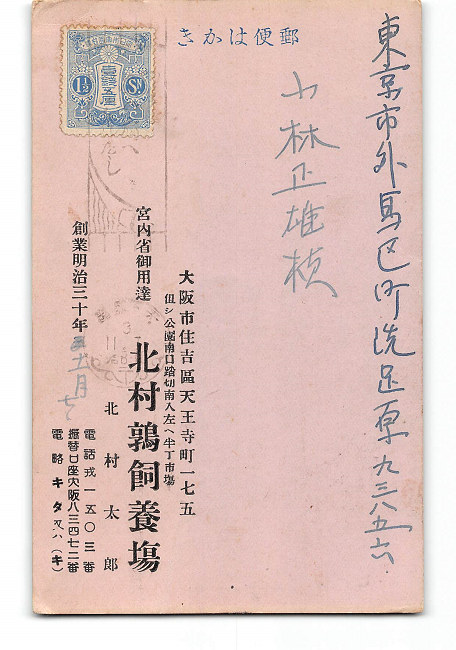 郵便はかき
東京市外馬込町洗足原九三八五六
小林正雄様
大阪市住吉區天王寺町一七五
但シ公園南口踏切南入左ヘ半丁市場
宮内省御用達
北村鶉飼養場
北村太郎
創業明治三十年
十一月
電話戎一五〇三番
振替口座大阪八三四七二番
電略キタ又ハ(キ)
壹錢五厘
1½ Sn.